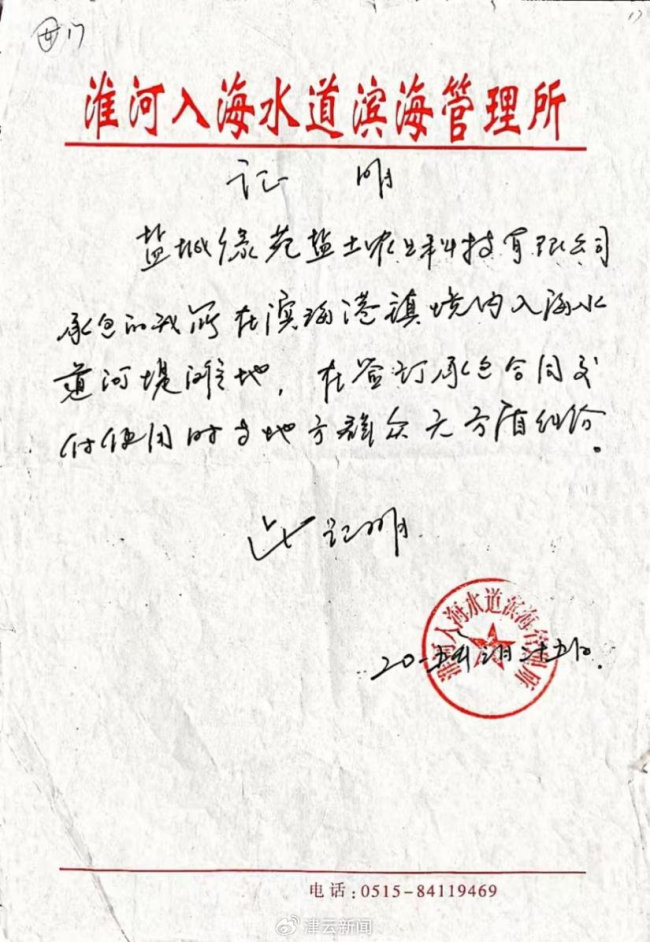 17
17
淮河入海水道滨海管理所
证 明
盐城绿苑盐土农业科技有限公司
承包的我所在滨海港镇境内入海水
道河堤滩地，在签订承包合同交
付使用时与地方群众无矛盾纠纷。
此证明
淮河入海水道滨海管理所
二〇一五年 月二十五日.
电话:0515-84119469
津云新闻